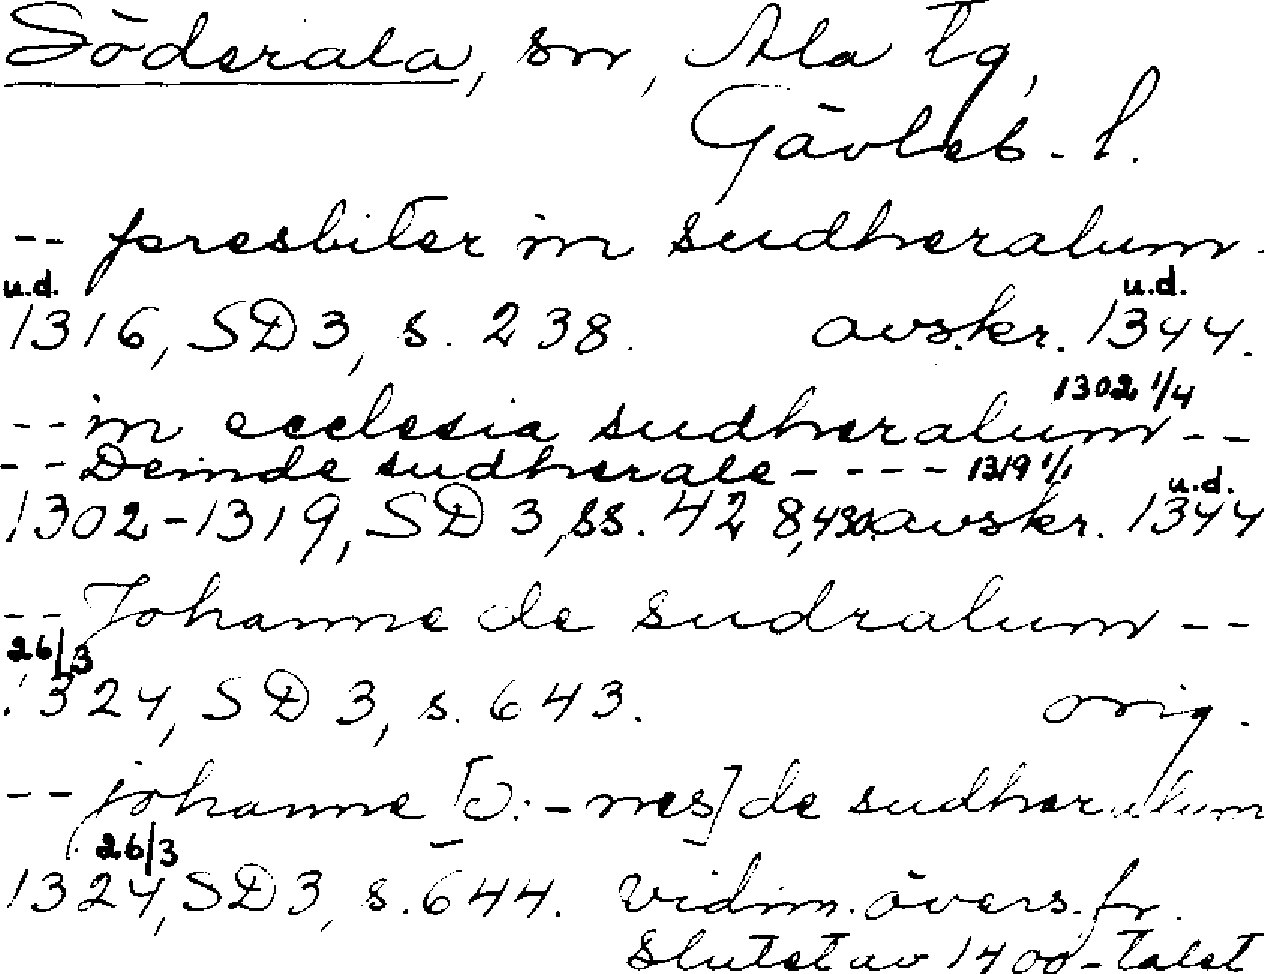 Söderala, sn, Ala tg,
Gävleb. l.
-- presbiter in sudheralum.
u.d. u.d.
1316, SD 3, s. 238. avskr. 1344.
1302 1/4
-- in ecclesia sudheralum --
-- Deinde sudherale ---- 1319 1/1
u.d.
1302-1319, SD 3, ss. 428, 430. avskr. 1344
-- Johanne de sudralum --
26/3
1324, SD 3, s. 643. orig.
-- johanne [o: -nes] de sudheralum
26/3
1324, SD 3, s. 644. vidim. övers. fr.
slutet av 1400-talet